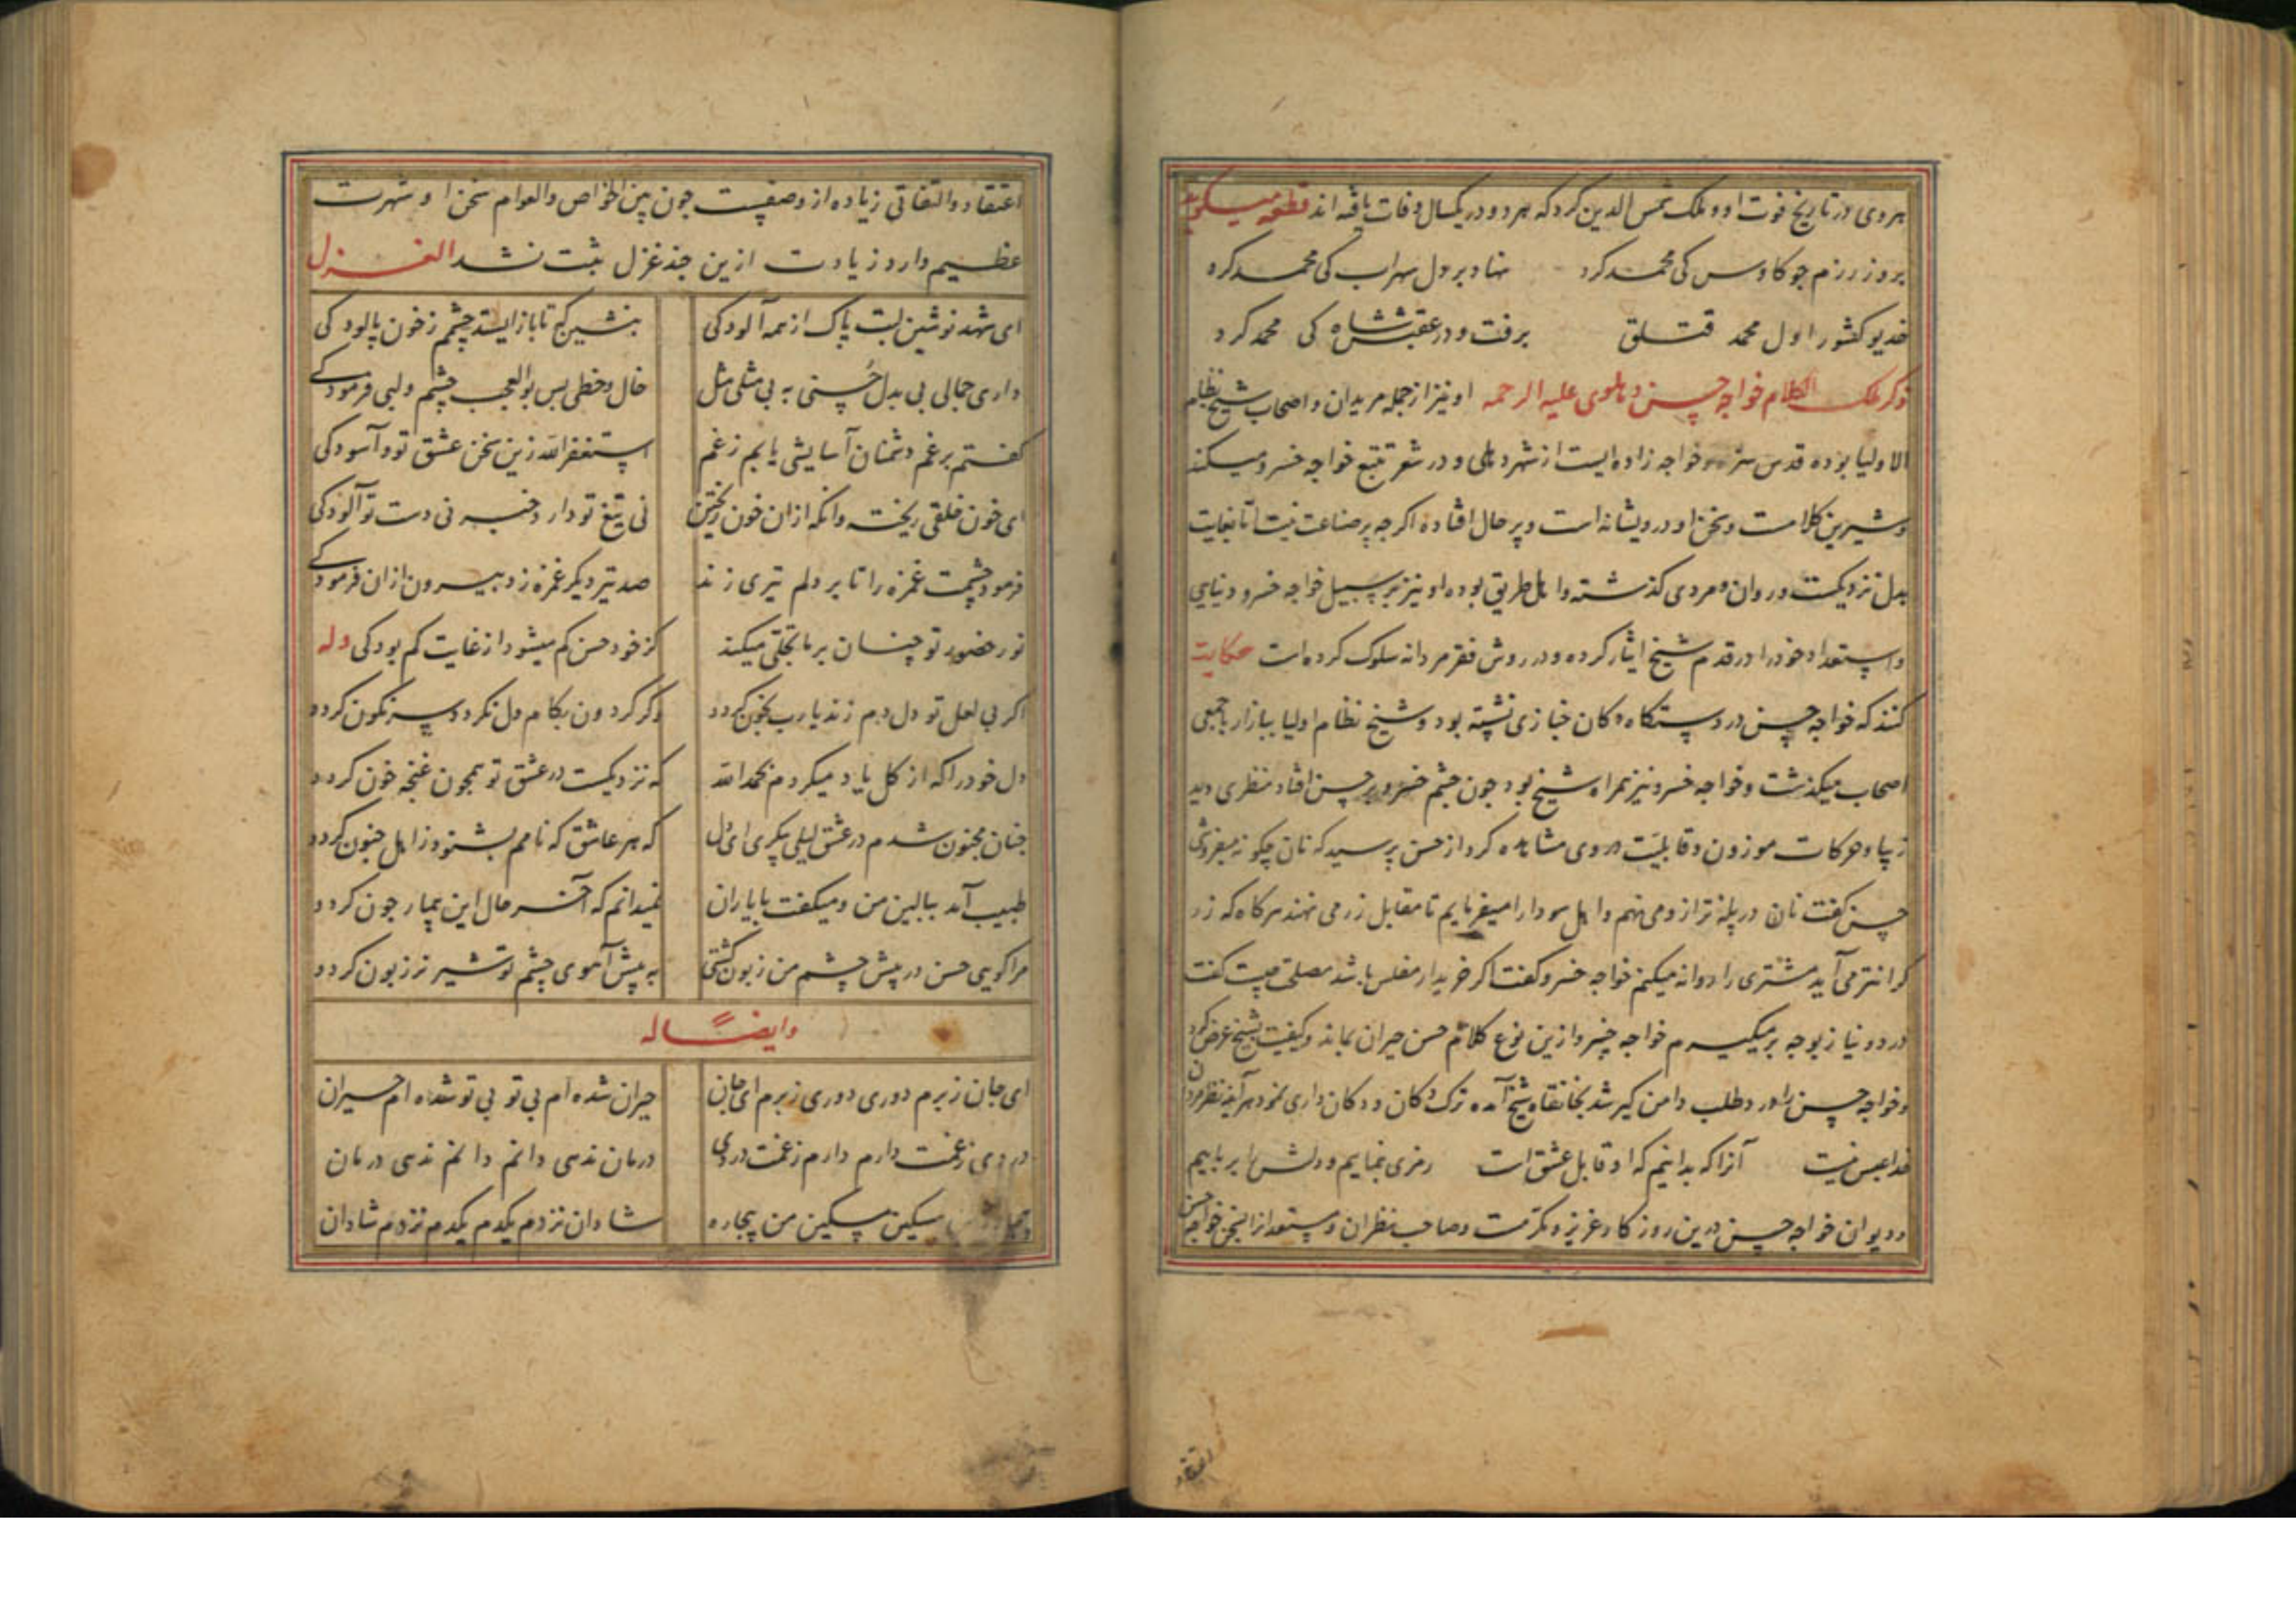 هروی در تاریخ فوت او و ملک شمس الدین کرد که هر دو در یکسال وفات یافته اند قطعه میکوید
بروز رزم جو کاوس کی محمد کرد نهاد بر دل سهراب کی محمد کرد
خدیو کشور اول محمد قتلق برفت و در عقبش شاه کی محمد کرد
ذکر ملک الکلام خواجه حسن دهلوی علیه الرحمه او نیز از جمله مریدان و اصحاب شیخ نظام
الاولیا بوده قدس سره و خواجه زاده ایست از شهر دهلی و در شعر تتبع خواجه خسرو میکند
و شیرین کلامست و سخن او درویشانه است و پر حال افتاده اکر جه پر صناعت نیست اما بغایت
بدل نزدیکست و روان و مردی کذشته و اهل طریق بوده او نیز بر سبیل خواجه خسرو دنیایی
و استعداد خود را در قدم شیخ ایثار کرده و در روش فقر مردانه سلوک کرده است حکایت
کنند که خواجه حسن در دستکاه دکان خبازی نشسته بود و شیخ نظام اولیا ببازار با جمعی
اصحاب میکذشت و خواجه خسرو نیز همراه شیخ بود جون جشم خسرو بر حسن افتاد منظری دید
زیبا و حرکات موزون و قابلیت در وی مشاهده کرد از حسن پرسید که نان چکونه میفروشی
حسن کفت نان در پله ترازو می نهم و اهل سودا را میفرمایم تا مقابل زر می نهند هرکاه که زر
کرانتر می آید مشتری را روانه میکنم خواجه خسرو کفت اکر خریدار مفلس باشد مصلحت چیست کفت
درد و نیاز بوجه بر میکیرم خواجه خسرو ازین نوع کلام حسن حیران بماند و کیفیت بشیخ عرض کرد
و خواجه حسن را درد طلب دامن کیر شد بخانقاه شیخ آمده ترک دکان و دکان داری نمود هر آینه نظر مردان
خدا عبس نیست آنرا که بدانیم که او قابل عشق است رمزی بنماییم و دلش برباییم
و دیوان خواجه حسن درین روزکار عزیز و مکرمست و صاحب نظران و مستعدانرا بسخن خواجه حسن
اعتقاد
اعتقاد و التفاتی زیاده از وصفیست جون بین الخواص والعوام سخن او شهرت
عظیم دارد زیادت ازین جند غزل ثبت نشد الغزل
ای شهد نوشین لبت پاک از همه آلودکی بنشین که تا باز ایستد چشم ز خون پالودکی
داری جمالی بی بدل حسنی به بی مثلی مثل خال و خطی بس بوالعجب چشم و لبی فرمودکی
کفتم برغم دشمنان آسایشی یابم ز غم استغفرالله زین سخن عشق تو و آسودکی
ای خون خلقی ریخته وانکه ازان خون ریختن نی تیغ تو دارد خبر نی دست تو آلودکی
فرمود چشمت غمزه را تا بر دلم تیری زند صد تیر دیکر غمزه زد بیرون ازان فرمودکی
نور حضور تو چنان بر ما تجلی میکند کز خود حسن کم میشود از غایت کم بودکی وله
اکر بی لعل تو دل دم زند یارب بخون کردد وکر کردون بکام دل نکردد سرنکون کردد
دل خود را که از کل یاد میکردم بحمد الله که نزدیکست در عشق تو همجون غنجه خون کردد
جنان مجنون شدم در عشق لیلی پیکری ای دل که هر عاشق که نامم بشنود ز اهل جنون کردد
طبیب آمد ببالین من و میکفت با یاران نمیدانم که آخر حال این بیمار جون کردد
مرا کویی حسن در پیش چشم من زبون کشتی به پیش آهوی چشم تو شیر نر زبون کردد
وایضاً له
ای جان ز برم دوری دوری ز برم ای جان حیران شده ام بی تو بی تو شده ام حیران
دردی ز غمت دارم دارم ز غمت دردی درمان ندهی دانم دانم ندهی درمان
مسکین مسکین من بیجاره شادان نزدم یکدم یکدم نزدم شادان